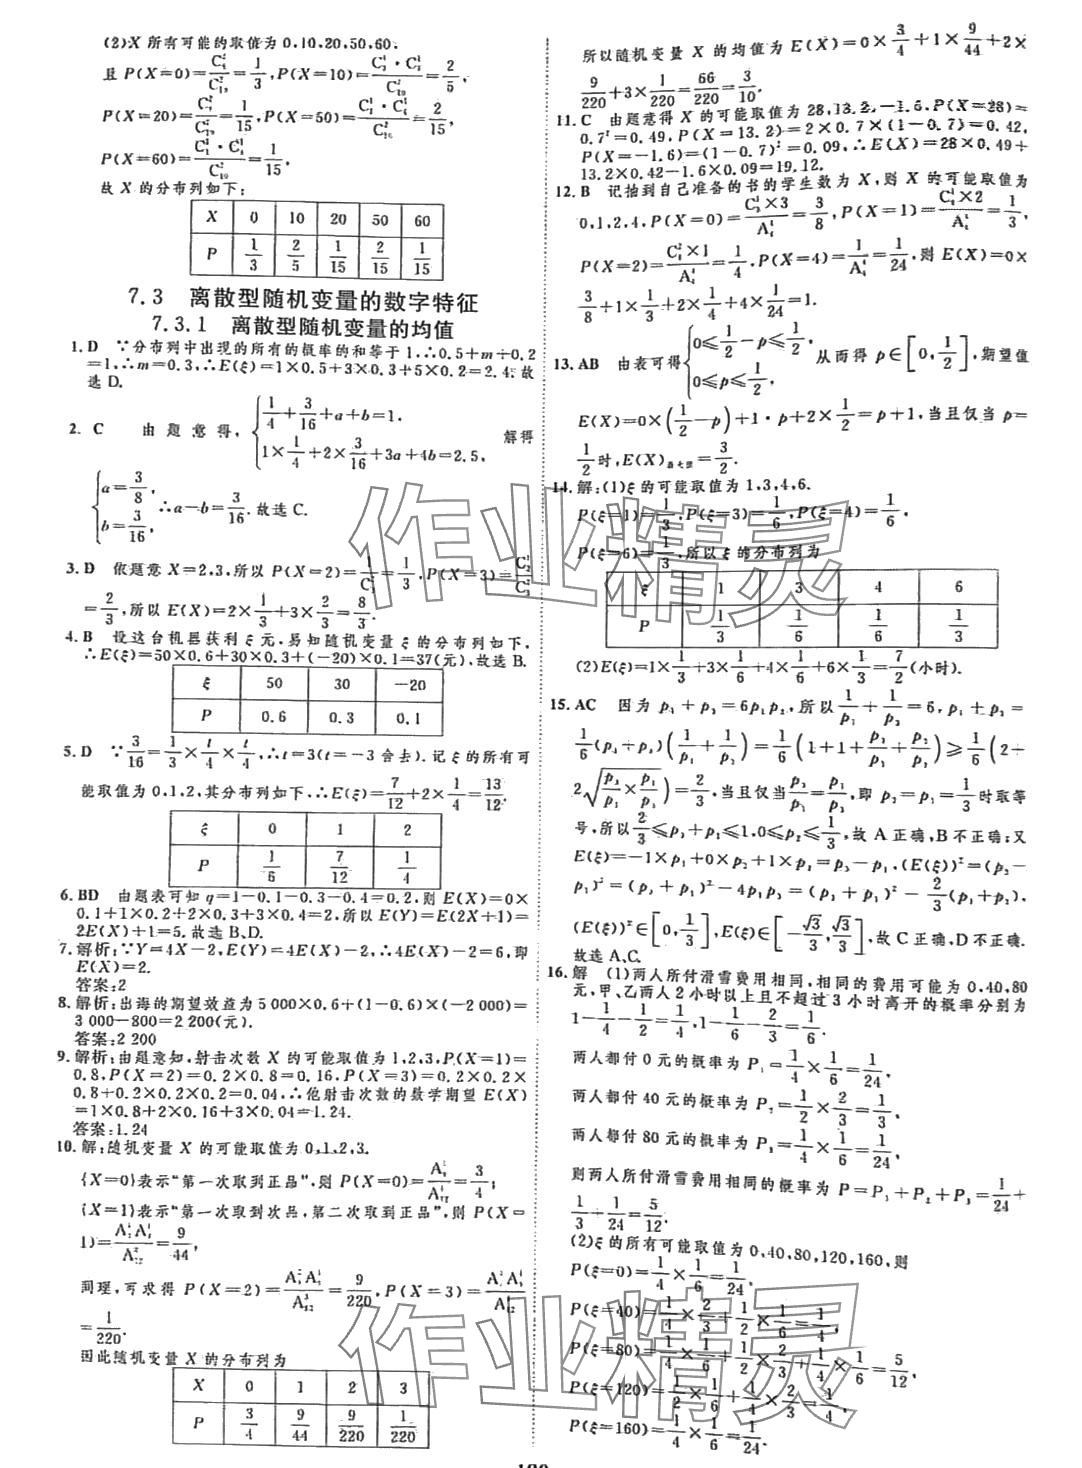 (2)X 所有可能的取值为 0,10,20,50,60.
且 P(X=0)=C¹₄/C¹₁₀=1/3,P(X=10)=C¹₃·C¹₄/C²₁₀=2/5,
P(X=20)=C²₄/C²₁₀=2/15,P(X=50)=C¹₁·C¹₄/C²₁₀=2/15,
P(X=60)=C¹₁·C¹₄/C²₁₀=1/15,
故 X 的分布列如下:
X 0 10 20 50 60
P 1/3 2/5 1/15 2/15 1/15
7.3 离散型随机变量的数字特征
7.3.1 离散型随机变量的均值
1. D ∵分布列中出现的所有的概率的和等于 1,∴0.5+m+0.2
=1,∴m=0.3,∴E(ξ)=1×0.5+3×0.3+5×0.2=2.4.故
选 D.
2. C 由题意得,{1/4+3/16+a+b=1, 1×1/4+2×3/16+3a+4b=2.5, 解得
{a=3/8, b=3/16, ∴a-b=3/16.故选 C.
3. D 依题意 X=2,3,所以 P(X=2)=1/C²₃=1/3,P(X=3)=C¹₂/C²₃
=2/3,所以 E(X)=2×1/3+3×2/3=8/3.
4. B 设这台机器获利 ξ 元,易知随机变量 ξ 的分布列如下,
∴E(ξ)=50×0.6+30×0.3+(-20)×0.1=37(元),故选 B.
ξ 50 30 -20
P 0.6 0.3 0.1
5. D ∵3/16=1/3×t/4×t/4,∴t=3(t=-3 舍去).记 ξ 的所有可
能取值为 0,1,2,其分布列如下,∴E(ξ)=7/12+2×1/4=13/12.
ξ 0 1 2
P 1/6 7/12 1/4
6. BD 由题表可知 q=1-0.1-0.3-0.4=0.2,则 E(X)=0×
0.1+1×0.2+2×0.3+3×0.4=2,所以 E(Y)=E(2X+1)=
2E(X)+1=5.故选 B,D.
7. 解析:∵Y=4X-2,E(Y)=4E(X)-2,∴4E(X)-2=6,即
E(X)=2.
答案:2
8. 解析:出海的期望效益为 5 000×0.6+(1-0.6)×(-2 000)=
3 000-800=2 200(元).
答案:2 200
9. 解析:由题意知,射击次数 X 的可能取值为 1,2,3,P(X=1)=
0.8,P(X=2)=0.2×0.8=0.16,P(X=3)=0.2×0.2×
0.8+0.2×0.2×0.2=0.04,∴他射击次数的数学期望 E(X)
=1×0.8+2×0.16+3×0.04=1.24.
答案:1.24
10. 解:随机变量 X 的可能取值为 0,1,2,3.
{X=0}表示“第一次取到正品”,则 P(X=0)=A¹₉/A¹₁₂=3/4;
{X=1}表示“第一次取到次品,第二次取到正品”,则 P(X=
1)=A¹₃A¹₉/A²₁₂=9/44,
同理,可求得 P(X=2)=A²₃A¹₉/A³₁₂=9/220,P(X=3)=A³₃A¹₉/A⁴₁₂
=1/220.
因此随机变量 X 的分布列为
X 0 1 2 3
P 3/4 9/44 9/220 1/220
所以随机变量 X 的均值为 E(X)=0×3/4+1×9/44+2×
9/220+3×1/220=66/220=3/10.
11. C 由题意得 X 的可能取值为 28,13.2,-1.6,P(X=28)=
0.7²=0.49,P(X=13.2)=2×0.7×(1-0.7)=0.42,
P(X=-1.6)=(1-0.7)²=0.09,∴E(X)=28×0.49+
13.2×0.42-1.6×0.09=19.12.
12. B 记抽到自己准备的书的学生数为 X,则 X 的可能取值为
0,1,2,4,P(X=0)=C¹₃×3/A⁴₄=3/8,P(X=1)=C¹₄×2/A⁴₄=1/3,
P(X=2)=C²₄×1/A⁴₄=1/4,P(X=4)=1/A⁴₄=1/24,则 E(X)=0×
3/8+1×1/3+2×1/4+4×1/24=1.
13. AB 由表可得{0≤1/2-p≤1/2, 0≤p≤1/2, 从而得 p∈[0,1/2],期望值
E(X)=0×(1/2-p)+1·p+2×1/2=p+1,当且仅当 p=
1/2时,E(X)最大值=3/2.
14. 解:(1)ξ 的可能取值为 1,3,4,6.
P(ξ=1)=1/3,P(ξ=3)=1/6,P(ξ=4)=1/6,
P(ξ=6)=1/3,所以 ξ 的分布列为
ξ 1 3 4 6
P 1/3 1/6 1/6 1/3
(2)E(ξ)=1×1/3+3×1/6+4×1/6+6×1/3=7/2(小时).
15. AC 因为 p₁+p₃=6p₁p₂,所以1/p₁+1/p₃=6,p₁+p₃=
1/6(p₁+p₃)(1/p₁+1/p₃)=1/6(1+1+p₃/p₁+p₁/p₃)≥1/6(2+
2√(p₃/p₁×p₁/p₃))=2/3,当且仅当p₃/p₁=p₁/p₃,即 p₃=p₁=1/3时取等
号,所以2/3≤p₃+p₁≤1,0≤p₂≤1/3,故 A 正确,B 不正确;又
E(ξ)=-1×p₁+0×p₂+1×p₃=p₃-p₁,(E(ξ))²=(p₃-
p₁)²=(p₃+p₁)²-4p₁p₃=(p₃+p₁)²-2/3(p₁+p₃),
(E(ξ))²∈[0,1/3],E(ξ)∈[-√3/3,√3/3],故 C 正确,D 不正确.
故选 A,C.
16. 解 (1)两人所付滑雪费用相同,相同的费用可能为 0,40,80
元,甲、乙两人 2 小时以上且不超过 3 小时离开的概率分别为
1-1/4-1/2=1/4,1-1/6-2/3=1/6.
两人都付 0 元的概率为 P₁=1/4×1/6=1/24,
两人都付 40 元的概率为 P₂=1/2×2/3=1/3,
两人都付 80 元的概率为 P₃=1/4×1/6=1/24,
则两人所付滑雪费用相同的概率为 P=P₁+P₂+P₃=1/24+
1/3+1/24=5/12.
(2)ξ 的所有可能取值为 0,40,80,120,160,则
P(ξ=0)=1/4×1/6=1/24,
P(ξ=40)=1/4×2/3+1/2×1/6=1/4,
P(ξ=80)=1/4×1/6+1/2×2/3+1/4×1/6=5/12,
P(ξ=120)=1/2×1/6+1/4×2/3=1/4,
P(ξ=160)=1/4×1/6=1/24.
作业精灵
作业精灵